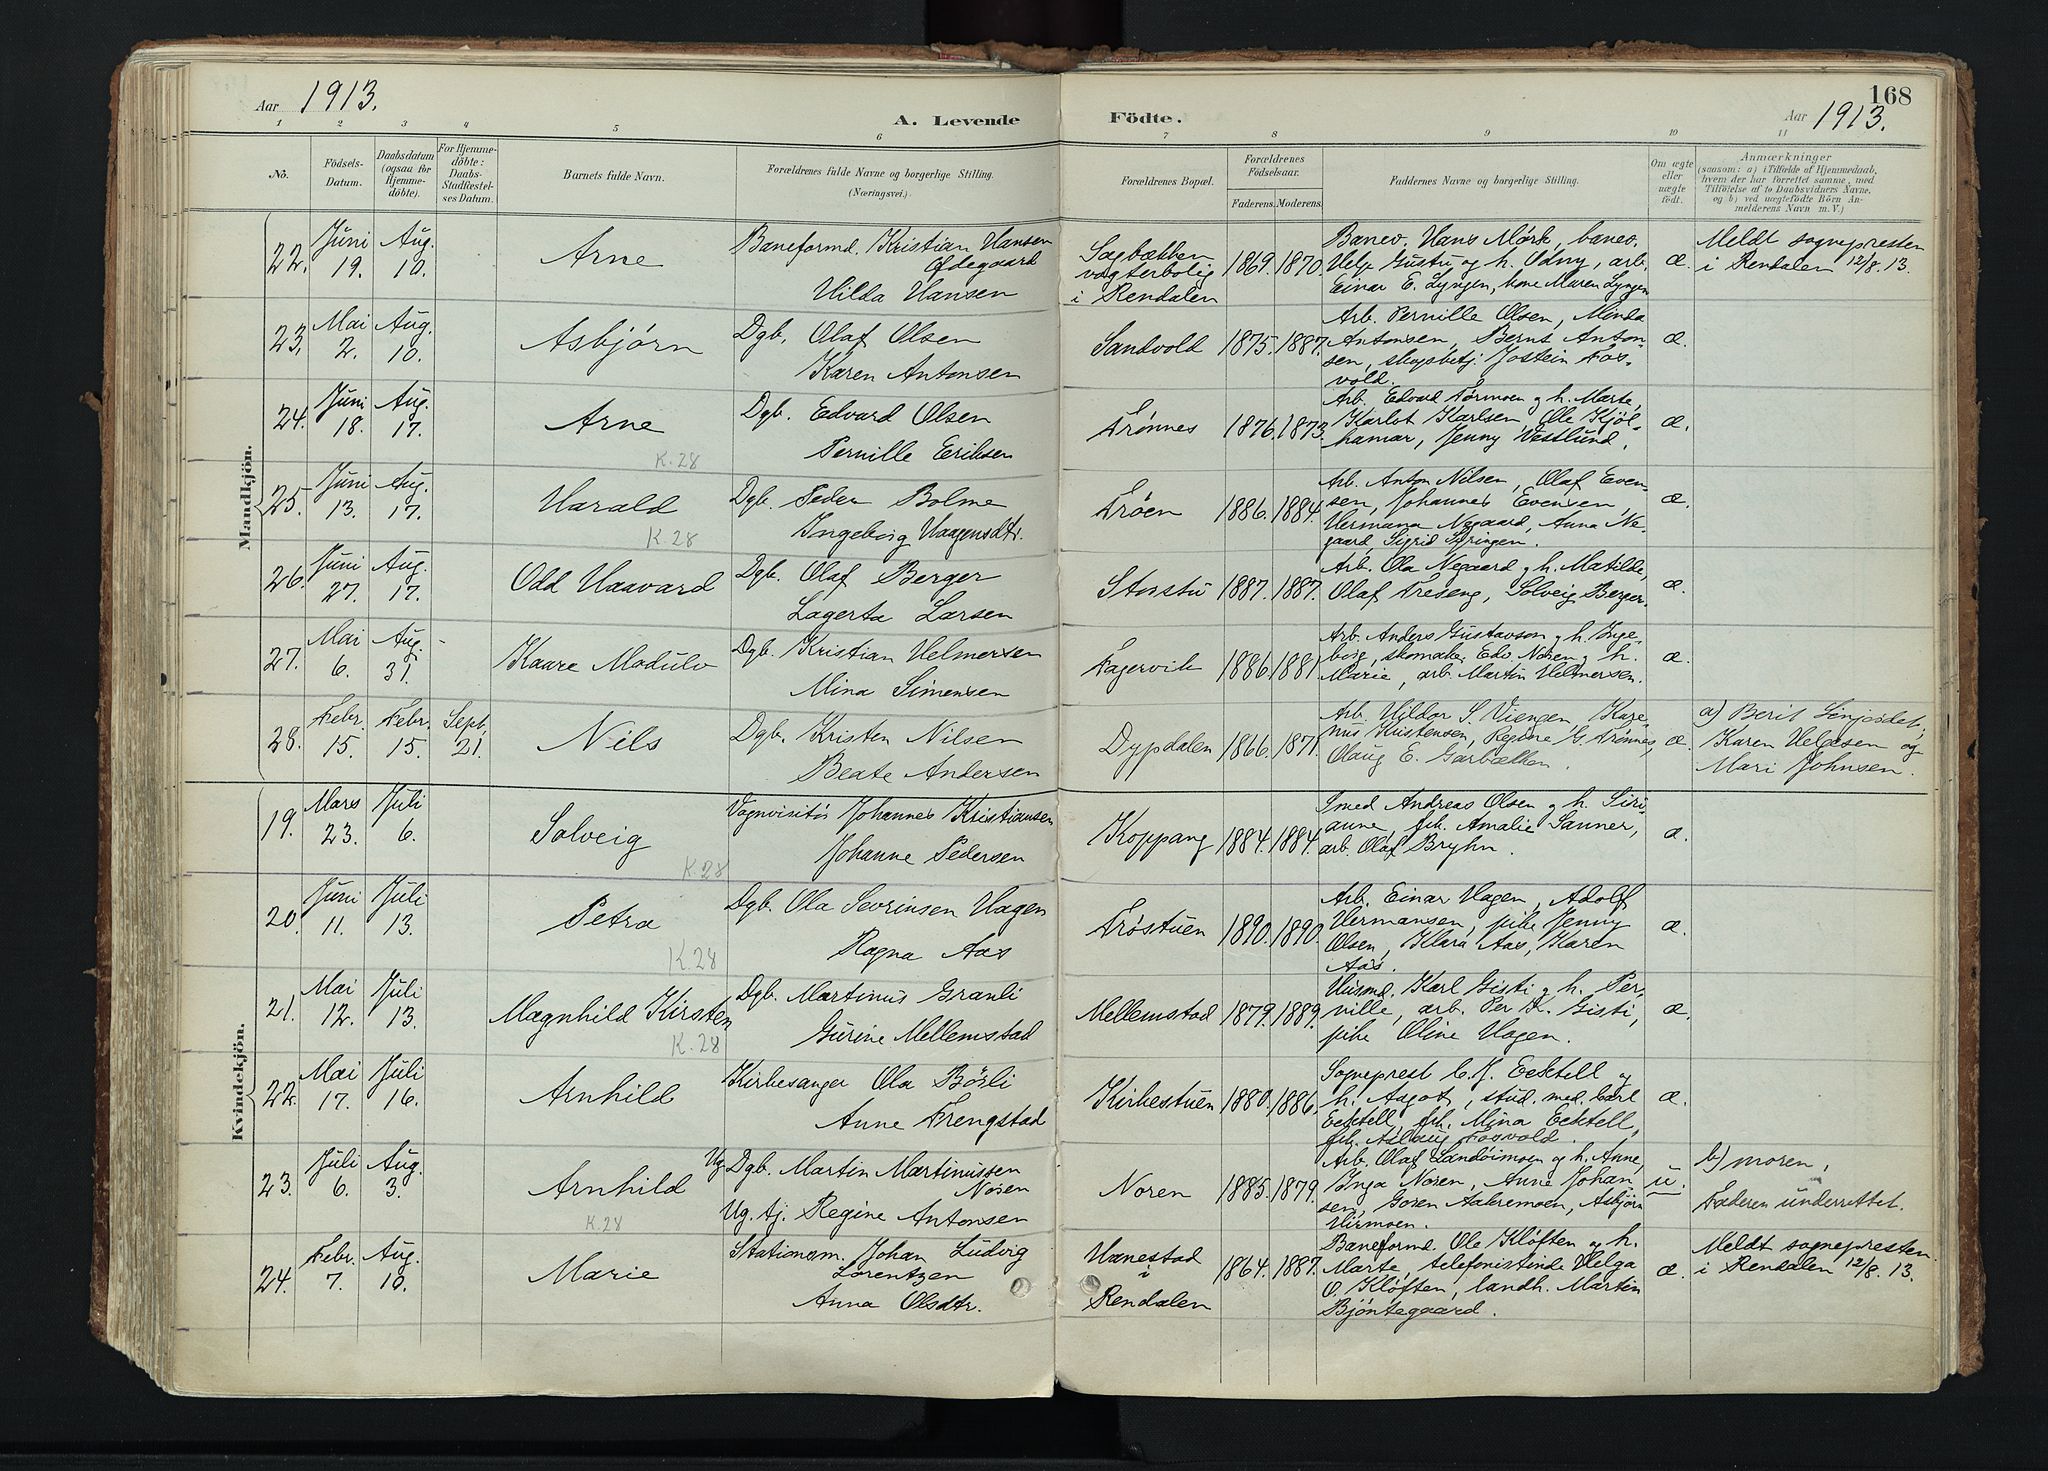 168
Aar 1913.
A. Levende Födte.
Aar 1913.
1 2 3 4 5 6 7 8 9 10 11
No.
Födsels-
Datum.
Daabsdatum
(ogsaa för
Hjemme-
döbte).
For Hjemme-
döbte:
Daabs-
Stadfæstel-
ses Datum.
Barnets fulde Navn.
Forældrenes fulde Navne og borgerlige Stilling.
(Næringsvei.)
Forældrenes Bopæl.
Forældrenes
Födselsaar.
Faderens. Moderens.
Faddernes Navne og borgerlige Stilling.
Om ægte
eller
uægte
født.
Anmærkninger
(saasom: a) i Tilfælde af Hjemmedaab,
hvem der har forrettet samme, med
Tilföielse af to Daabsvidners Navne,
og b) ved uægtefödte Börn An-
melderens Navn m. V.)
Mandkjön.
22.
Juni
19.
Aug.
10.
Arne
Baneformd. Kristian Hansen
Ødegaard
Hilda Hansen
Sagbækken
vogterbolig
i Rendalen
1869. 1870.
Banev. Hans Mörk, banev.
Helge Gustu og h. Odny, arb.
Einar E. Lyngen, kone Maren Lyngen
æ.
Meldt sognepresten
i Rendalen 12/8. 13.
23.
Mai
2.
Aug.
10.
Asbjørn
Dgb. Olaf Olsen
Karen Antonsen
Sandvold
1875. 1887.
Arb. Pernille Olsen, Minda
Antonsen, Bernt Anton-
sen, skogsbetj. Jostein Fos-
vold.
æ.
24.
Juni
18.
Aug.
17.
Arne
K. 28
Dgb. Edvard Olsen
Pernille Eriksen
Trønnes
1876. 1873.
Arb. Edvard Tørmoen og h. Marte,
Karlot Karlsen, Ole Kjöl-
hamar, Jenny Vestlund.
æ.
25.
Juni
13.
Aug.
17.
Harald
K. 28
Dgb. Peder Bolme
Ingeborg Haagensdtr.
Trøen
1886. 1884.
Arb. Anton Nilsen, Olaf Even-
sen, Johannes Evensen,
Hermana Negaard, Anna Ne-
gaard, Sigrid Syringen.
æ.
26.
Juni
27.
Aug.
17.
Odd Haavard
Dgb. Olaf Berger
Lagerta Larsen
Storstu
1887. 1887.
Arb. Ola Negaard og h. Matilde,
Olaf Treseng, Solveig Berger.
æ.
27.
Mai
6.
Aug.
31.
Kaare Modulv
Dgb. Kristian Helmersen
Mina Simensen
Fagervik
1886. 1881.
Arb. Anders Gustavson og h. Inge-
borg, skomaker Edv. Noren og h.
Marie, arb. Martin Helmersen.
æ.
28.
Febr.
15.
Febr.
15.
Sept.
21.
Nils
Dgb. Kristen Nilsen
Beate Andersen
Dypdalen
1866. 1871.
Arb. Hildor S. Viengen, Kare-
nus Kristensen, G. Trønnes,
Olaug E. Garbækken.
æ.
a) Berit
Karen Helgesen og
Mari Johnsen.
Kvindekjön.
19.
Mars
23.
Juli
6.
Solveig
K. 28
Vognvisitør Johannes Kristiansen
Johanne Pedersen
Koppang
1884. 1884.
Smed Andreas Olsen og h. Siri-
anne, frk. Amalie Sanner,
arb. Olaf Bryhn.
æ.
20.
Juni
11.
Juli
13.
Petra
K. 28
Dgb. Ola Sevrinsen Hagen
Ragna Aas
Trøstuen
1890. 1890.
Arb. Einar Hagen, Adolf
Hermansen, pike Jenny
Olsen, Klara Aas, Karen
Aas.
æ.
21.
Mai
12.
Juli
13.
Magnhild Kirsten
K. 28
Dgb. Martinus Granli
Gurine Mellemstad
Mellemstad
1879. 1889.
Husmd. Karl Gisti og h. Per-
nille, arb. Per K. Gisti,
pike Oline Hagen.
æ.
22.
Mai
17.
Juli
16.
Arnhild
Kirkesanger Ola Börli
Anne Trengstad
Kirkestuen
1880. 1886.
Sogneprest C. J. Ecktell og
h. Aagot, stud. med. Carl
Ecktell, frk. Mina Ecktell,
frk. Aslaug Fosvold.
æ.
23.
Juli
6.
Aug.
3.
Arnhild
K. 28
Ug. Dgb. Martin Martinussen
Noren
Ug. tj. Regine Antonsen
Noren
1885. 1879.
Arb. Olaf Landøimoen og h. Anne,
Inga Noren, Anne Johan
sen, Goren Aakremoen, Asbjørn
Hirmoen.
u.
b) moren,
Faderen underrettet.
24.
Febr.
7.
Aug.
10.
Marie
Stationsm. Johan Ludvig
Lorentzen
Anna Olsdtr.
Hanestad
i
Rendalen
1864. 1887.
Baneformd. Ole Kløften og h.
Marte, telefonistinde Helga
O. Kløften, landh. Martin
Bjöntegaard.
æ.
Meldt sognepresten
i Rendalen 12/8. 13.